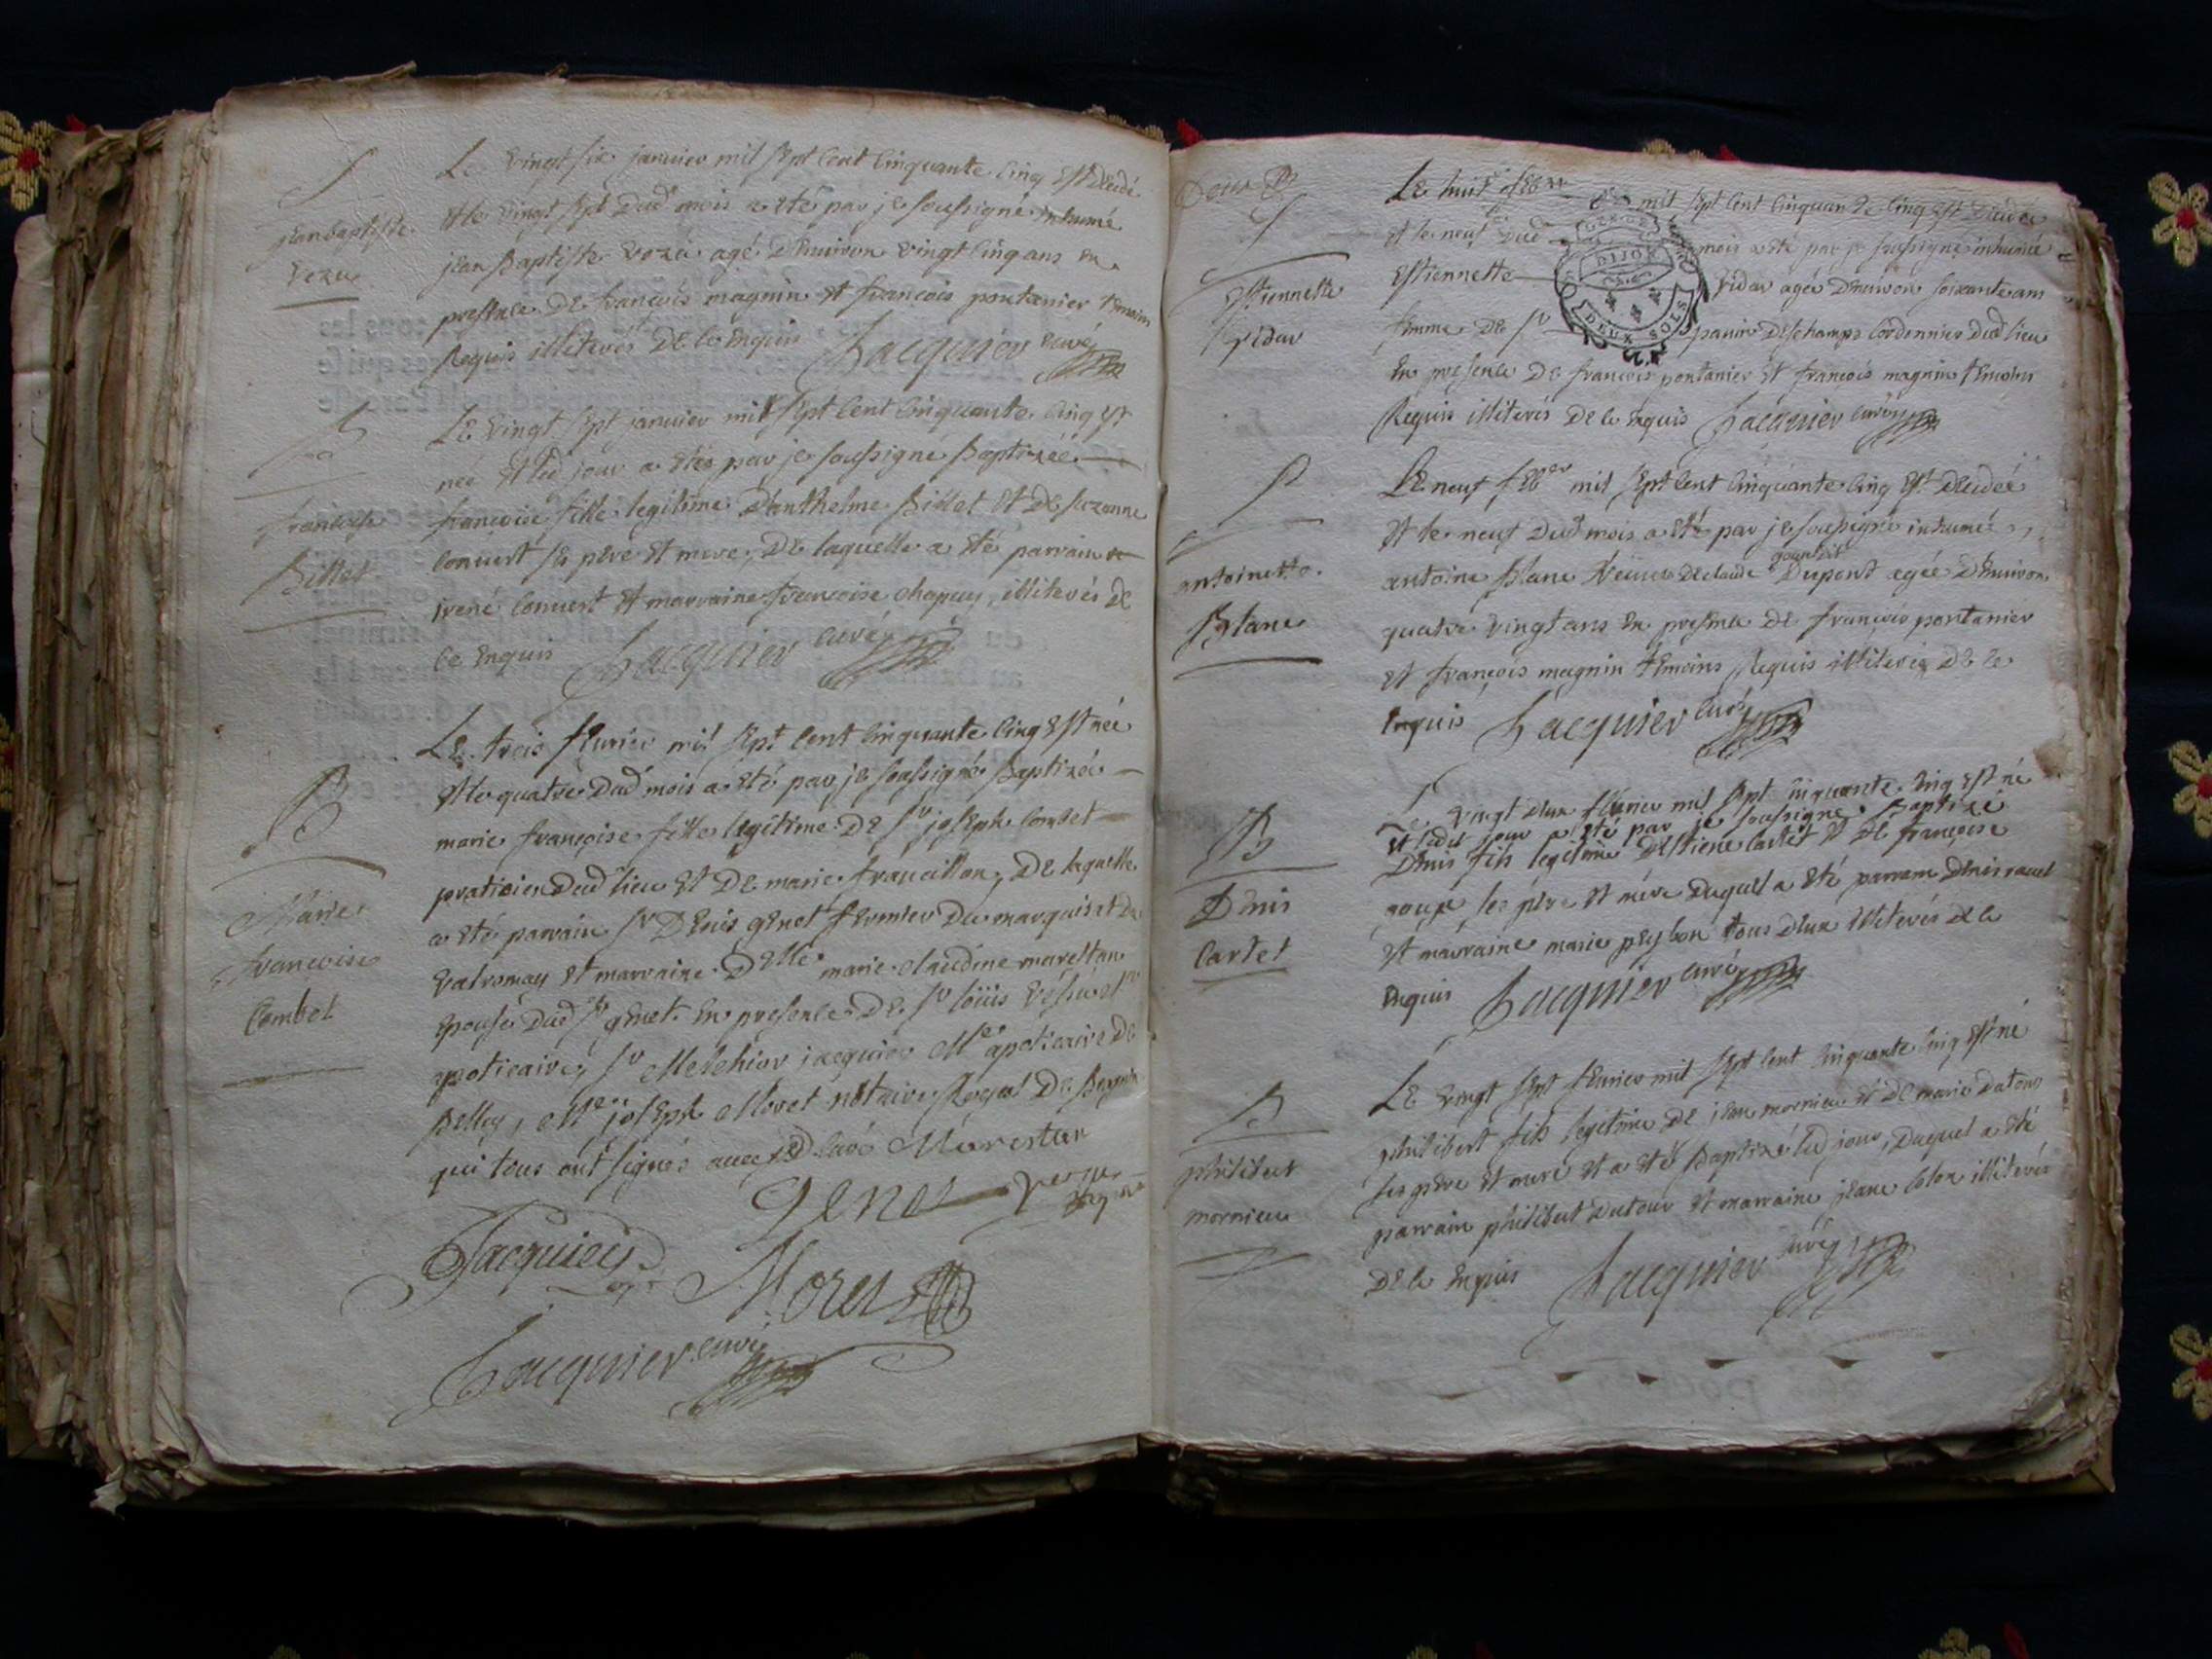 S
jean baptiste
Veza
Le vingt six janvier mil sept cent cinquante cinq est decidé
et le vingt sept dud mois a été par je soussigné inhumé
jean Baptiste Voza agé denuiron vingt cinq ans en
presence de françois magnin et francois pontanier temoin
Requis illiterés de ce enquis Jacquier curé
B
francoise
Billet
Le vingt sept janvier mil sept cent cinquante cinq est
née et led jour a étés par je soussigné Baptizéé
françoise fille legitime d'anthelme Billet et de suzanne
convert se pere et mere, de laquelle a été parrain
irené convert et marraine francoise chapuy, illiterés de
ce enquis Jacquier curé
B
Marie
francoise
Combet
Le trois feurier mil sept cent cinquante cinq est née
et le quatre dud mois a été par je soussigné Baptizée
marie françoise fille legitime de Sr joseph Combet
praticien dud lieu et de marie francillon, de laquelle
a été parrain Sr Denis genet fermier du marquisat du
valromay et marraine Delle marie claudine marestan
epouse dud Sr genet en presence de Sr loüis
apoticaire, Sr Melchior jacquier Me apoticaire de
Belley, Me joseph Moret notaire Royal de
qui tous ont signés avec led curé Marestan
Genet
Jacquier
Moret
Jacquier curé
S
Estiennette
vidar
Le huit febr mil sept cent cinquante cinq est decidée
et le neuf dud mois a été par je soussigné inhumée
Estiennette vidar agée denuiron soixante ans
femme de Sr panin Deschamps Cordonnier dud lieu
en presence de francois pontanier et françois magnin temoins
Requis illiterés de ce enquis Jacquier curé
DIJON
DEUX SOLS
S
antoinette
Blanc
Le neuf feber mil sept cent cinquante cinq est decidée
et le neuf dud mois a été par je soussigné inhumée
antoine Blanc veuve de claude Dupont agée denuiron
quatre vingt ans en presence de françois pontanier
et françois magnin temoins Requis illiterés de ce
enquis Jacquier curé
B
Denis
Cartet
Le vingt deux feurier mil sept cinquante cinq est né
et ledit jour a été par je soussigné Baptizé
Denis fils legitime destiene cartet et de françoise
goujx ses père et mére duquel a été parrain Denis
et marraine marie peysson tous deux illiterés de ce
enquis Jacquier curé
B
philibert
mornieu
Le vingt sept feurier mil sept cent cinquante cinq est né
philibert fils legitime de jean mornieu et de marie dutour
ses pere et mere et a été Baptizé led jour, duquel a été
parrain philibert dutour et marraine jeane colon illiterés
de ce enquis Jacquier curé